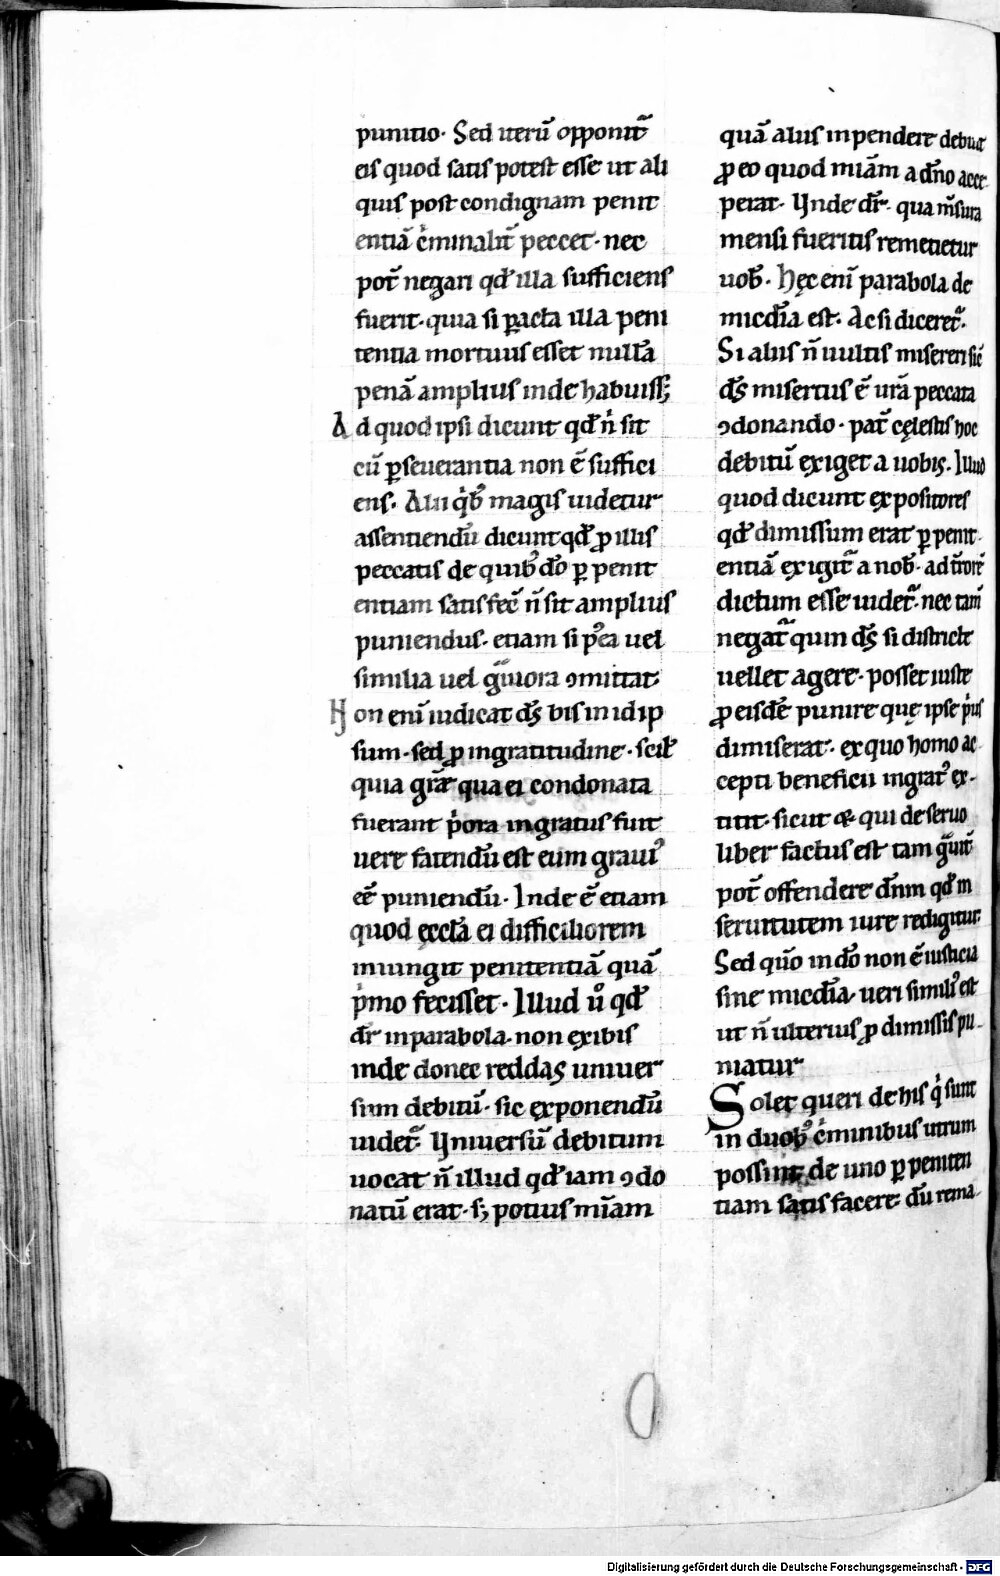 punitio. Sed iterū opponit᷑
eis quod satis potest esse ut ali
quis post condignam penit
entiā cͥminalit᷑ peccet. nec
pot᷑ negari qđ illa sufficiens
fuerit. quia si ꝑacta illa peni
tentia mortuus esset nullā
penā amplius inde habuiss;
Ad quod ipsi dicunt qđ n̄ sit
cū ꝑseuerantia non ē suffici
ens. Alii qͥbꝰ magis uidetur
assentiendū dicunt qđ ꝓ illis
peccatis de quibꝰ dō ꝑ penit
entiam satisfec̄ n̄ sit amplius
puniendus. etiam si pꝰea uel
similia uel gͣuiora ꝯmittat
Non enī iudicat ds̄ bis in id ip
sum. sed ꝓ ingratitudine. scił
quia gr̄ę qua ei condonata
fuerant pͥora ingratus fuit
uere fatendū est eum grauiꝰ
eē puniendū. Inde ē etiam
quod ęccłā ei difficiliorem
iniungit penitentiā quā
pͥmo fecisset. Illud uͦ qđ
dr̄ in parabola. non exibis
inde donec reddas uniuer
sum debitū. sic exponendū
uidet᷑. Uniuersū debitum
uocat n̄ illud qđ iam ꝯdo
natū erat. s; potius mīam
quā aliis inpendere debuit
ꝓ eo quod miām a dn̄o acce
perat. Unde dr̄. qua m̄sura
mensi fueritis remetietur
uob̄. Hęc enī parabola de
mićdia est. Ac si diceret᷑.
Si aliis n̄ uultis misereri sic̄
ds̄ misertus ē ur̄a peccata
ꝯdonando. pat᷑ cęlestis hoc
debitū exiget a uobis. Illud
quod dicunt expositores
qđ dimissum erat ꝑ penit
entiā exigit᷑ a nob̄. ad t̄rorē
dictum esse uidet᷑. nec tam̄
negat᷑ quin ds̄ si districte
uellet agere. posset iuste
ꝓ eisdē punire quę ipse pͥus
dimiserat. ex quo homo ac
cepti beneficii ingratꝰ ex
titit. sicut & qui de seruo
liber factus est tam gͣuit᷑
pot᷑ offendere dn̄m qđ in
seruitutem iure redigitur
Sed quō in dō non ē iusticia
sine mićdia. ueri similiꝰ est
ut n̄ ulterius ꝓ dimissis pu
niatur
Solet queri de his qͥ sunt
in duobꝰ cͥminibus utrum
possint de uno ꝑ peniten
tiam satisfacere dū rema
Digitalisierung gefördert durch die Deutsche Forschungsgemeinschaft - DFG